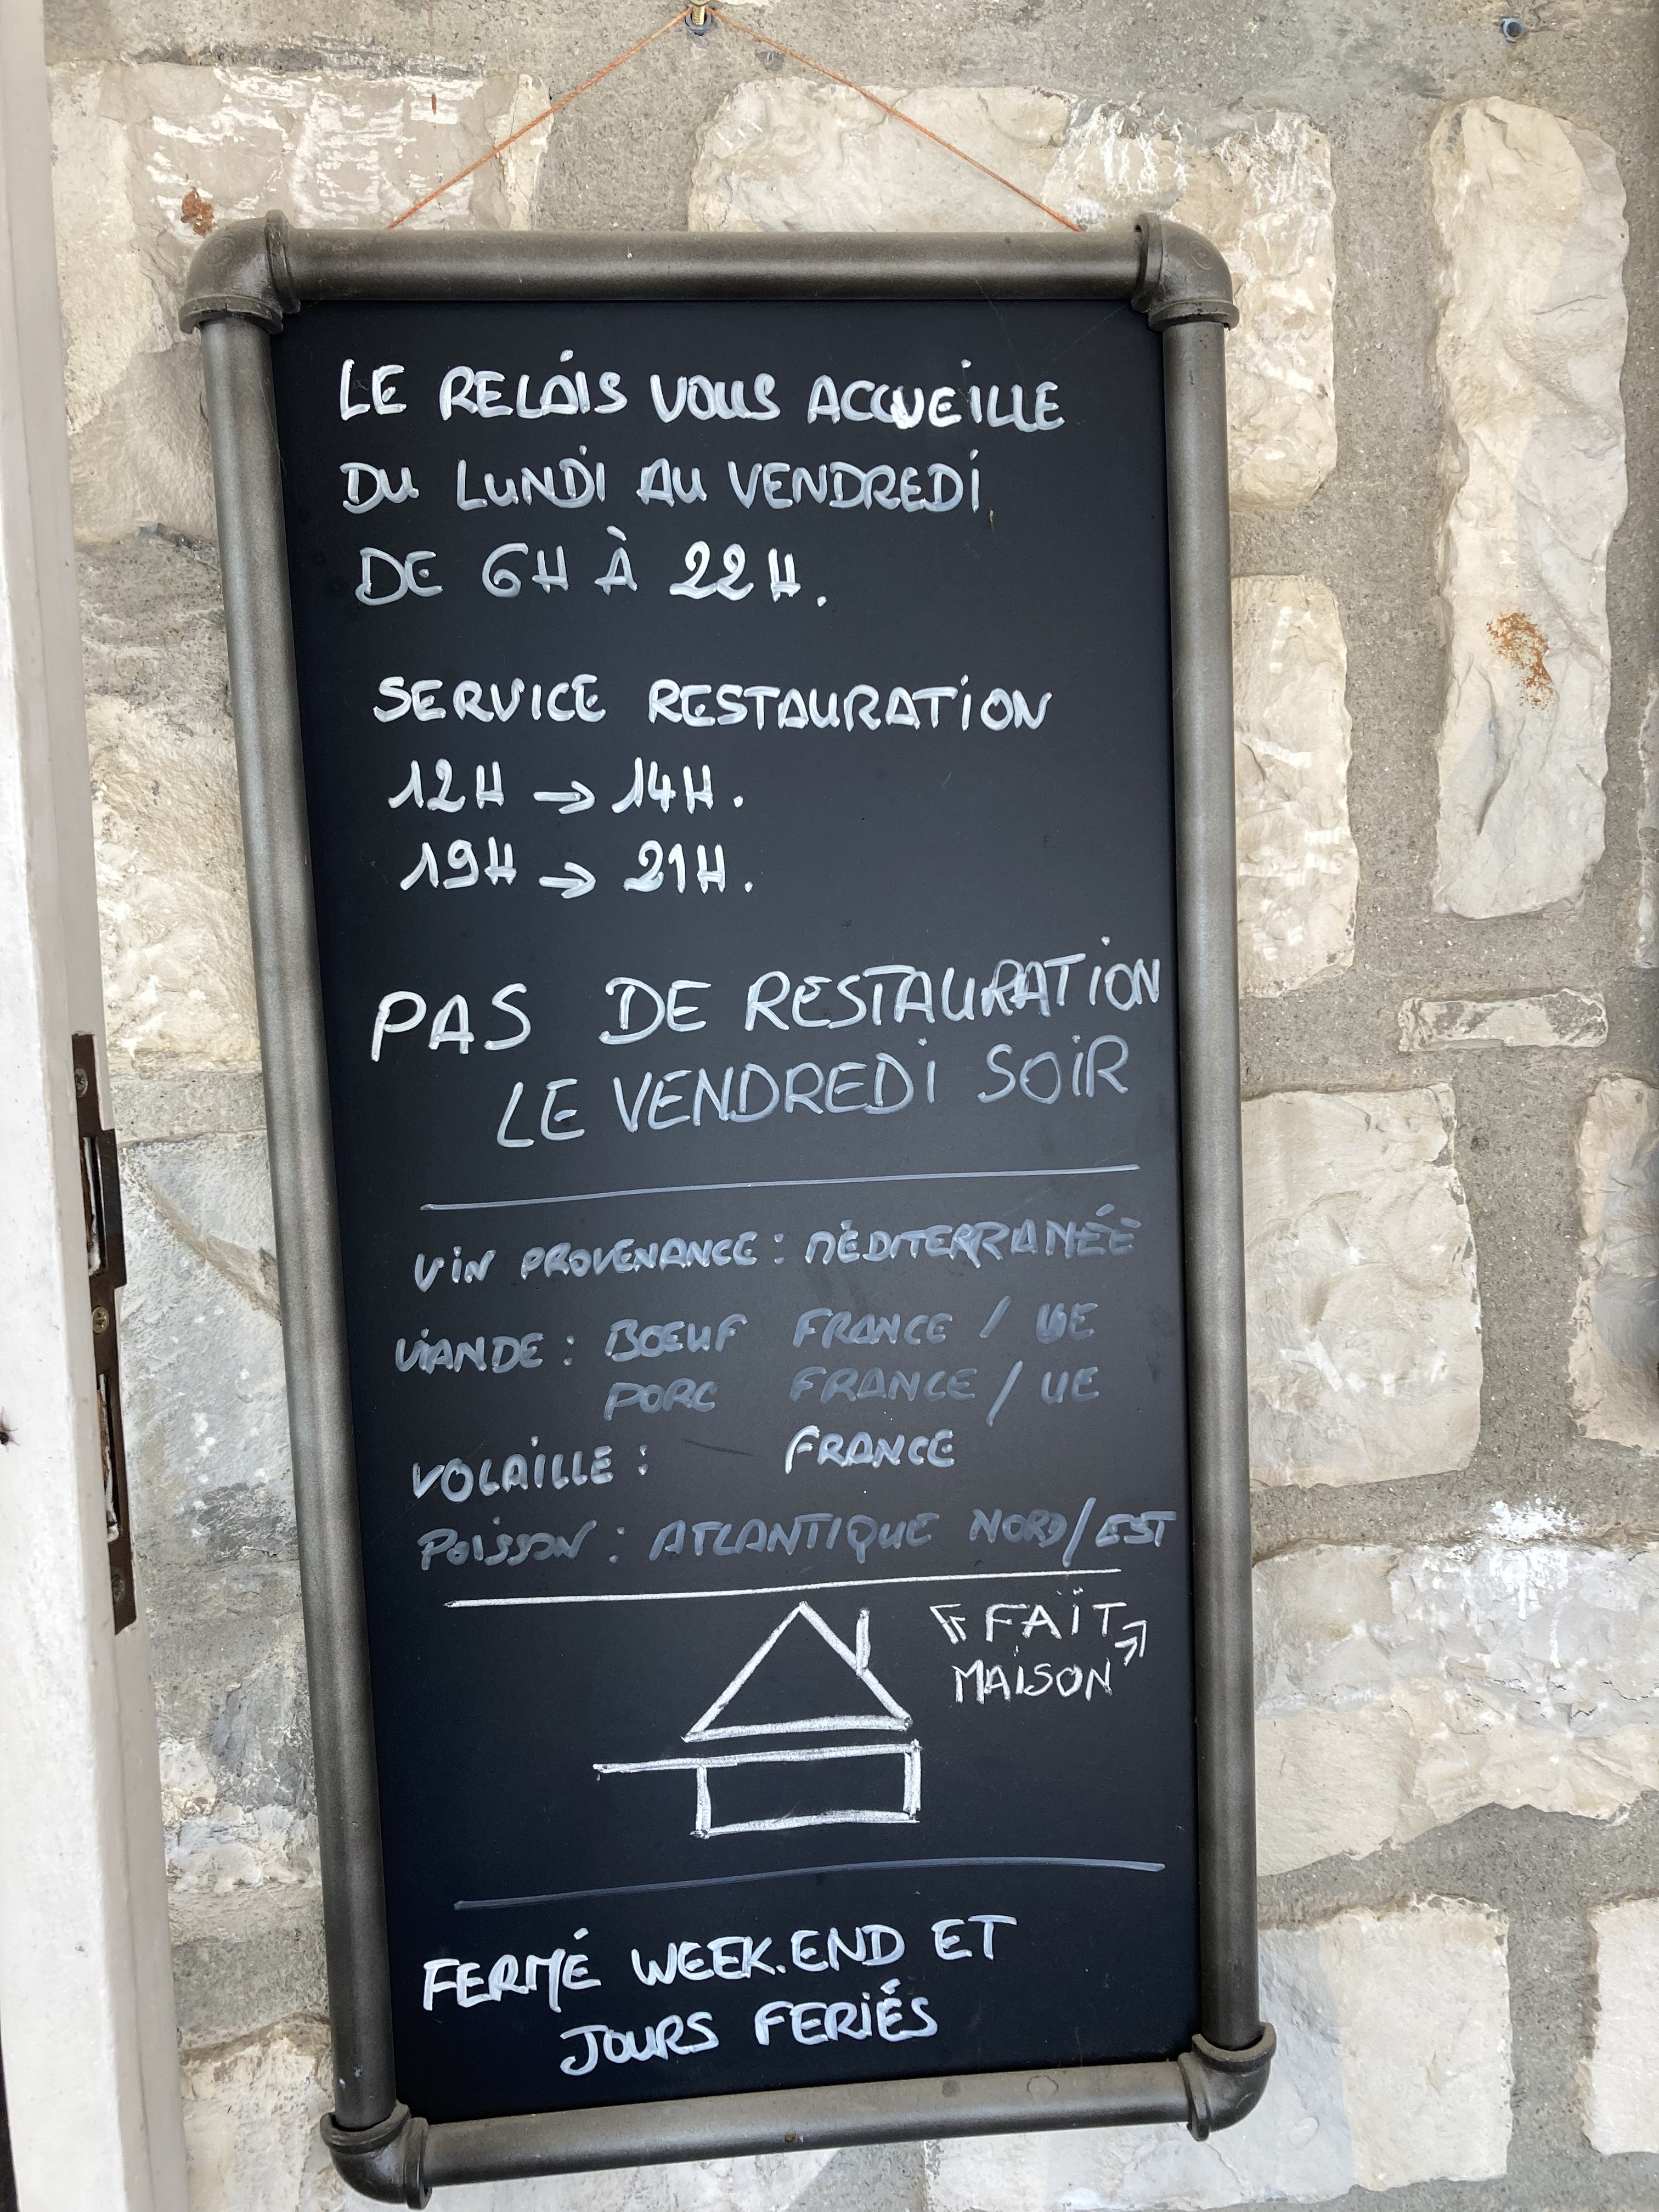 LE RELAIS VOUS ACCUEILLE
DU LUNDI AU VENDREDI
DE 6H À 22H.
SERVICE RESTAURATION
12H → 14H.
19H → 21H.
PAS DE RESTAURATION
LE VENDREDI SOIR
VIN PROVENANCE : MÉDITERRANÉE
VIANDE : BOEUF FRANCE / UE
PORC FRANCE / UE
VOLAILLE : FRANCE
POISSON : ATLANTIQUE NORD/EST
"FAÏT
MAISON"
FERMÉ WEEK.END ET
JOURS FERIÉS